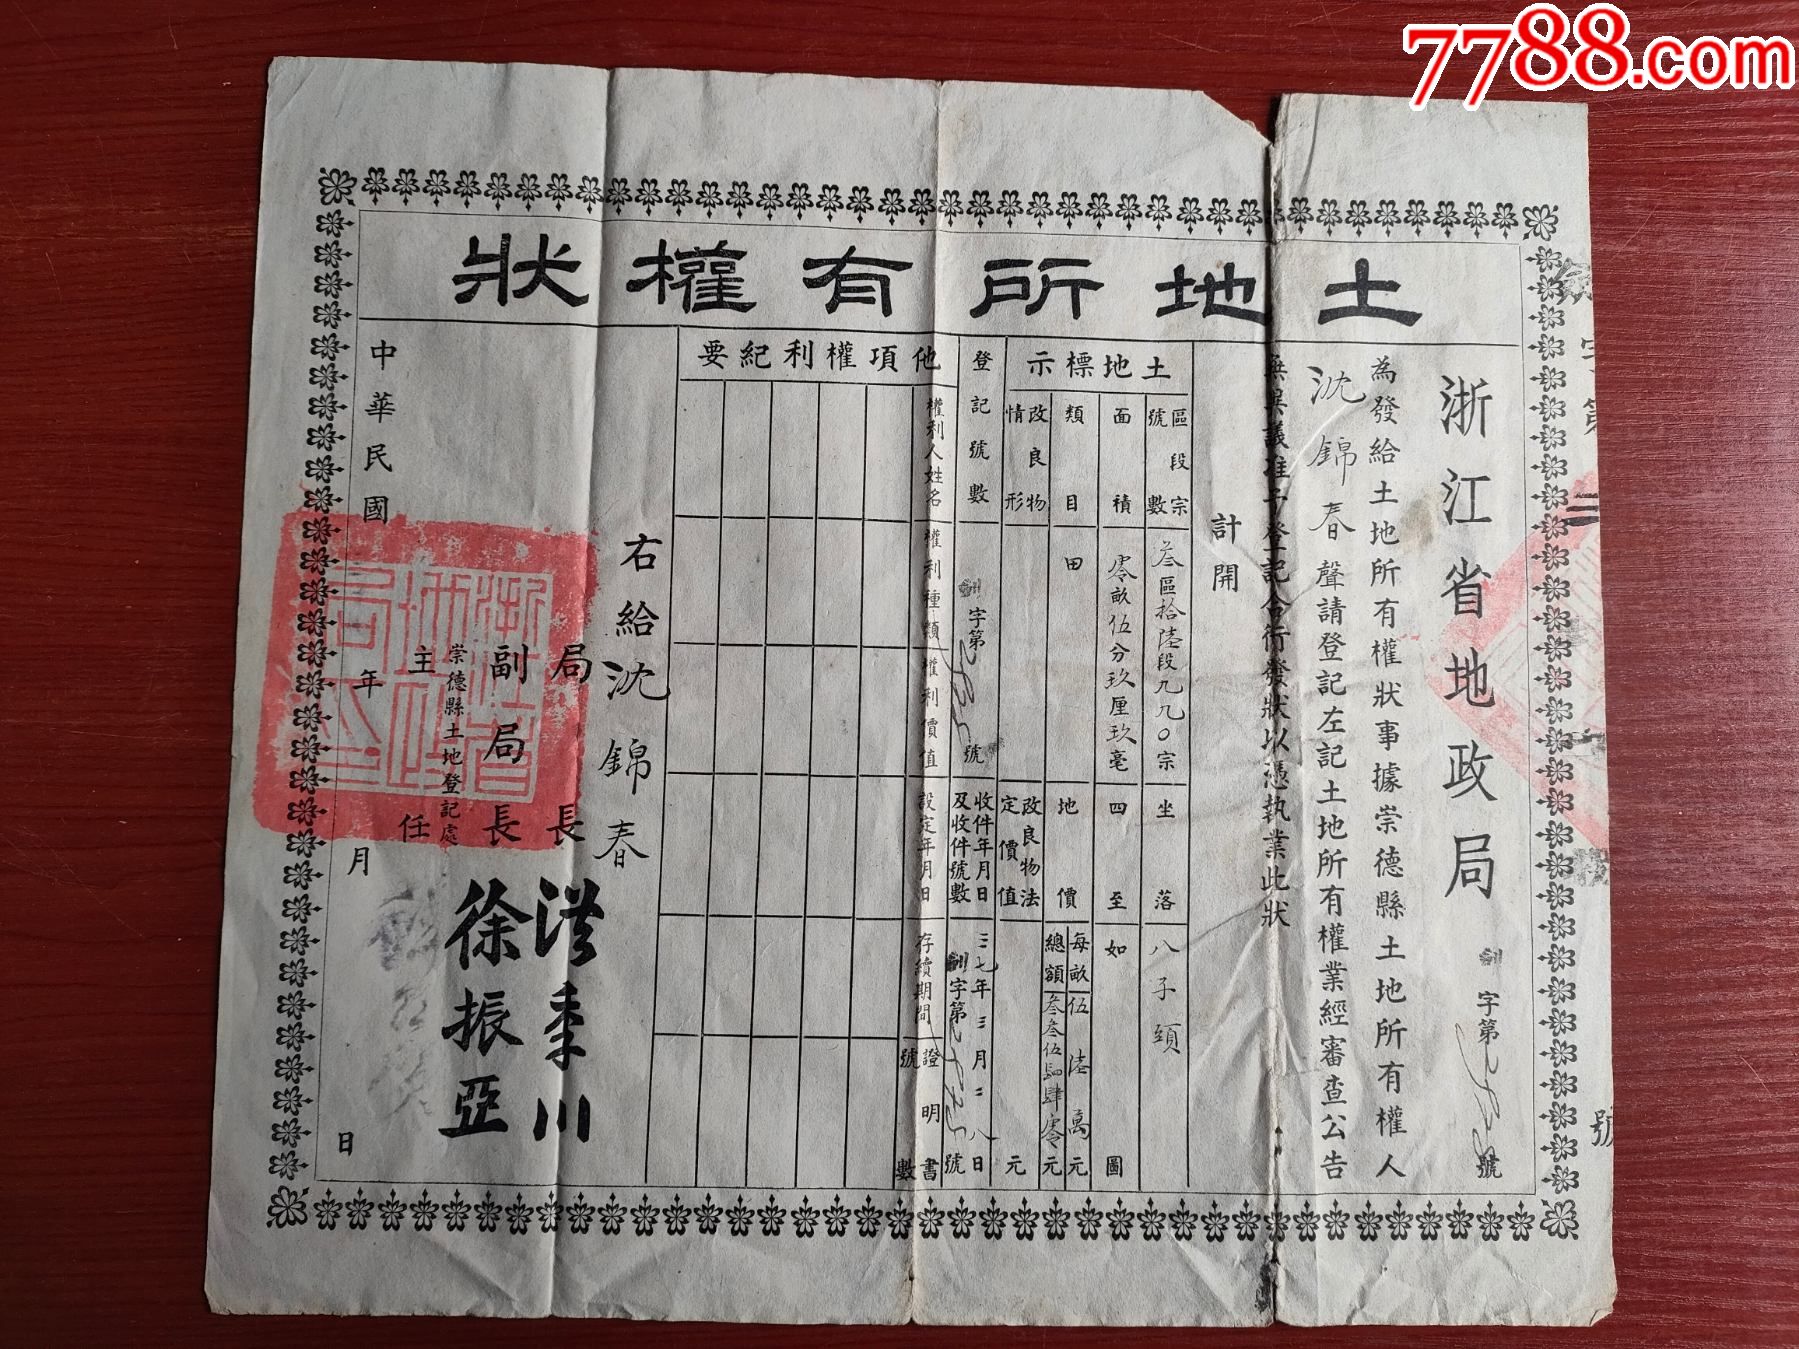 7788.com
土地所有權狀
浙江省地政局
字第 號
為發給土地所有權狀事據崇德縣土地所有權人
沈錦春聲請登記左記土地所有權業經審查公告
無異議准予登記合行發狀以憑執業此狀
計開
土地標示
區段號數宗
叁區拾陸段九九〇宗
坐落
八子頭
面積
零畝伍分玖厘玖毫
四至
如圖
類目
田
地價
每畝伍陸萬元
總額叁叁伍肆零元
改良物情形
改良物法定價值
元
登記號數
字第 號
收件年月日及收件號數
三七年三月二八日
字第 號
他項權利紀要
權利人姓名
權利種類
權利價值
設定年月日
存續期間
證明書號數
右給沈錦春
局長 洪季川
副局長 徐振亞
崇德縣土地登記處
主任
中華民國 年 月 日
字第
號